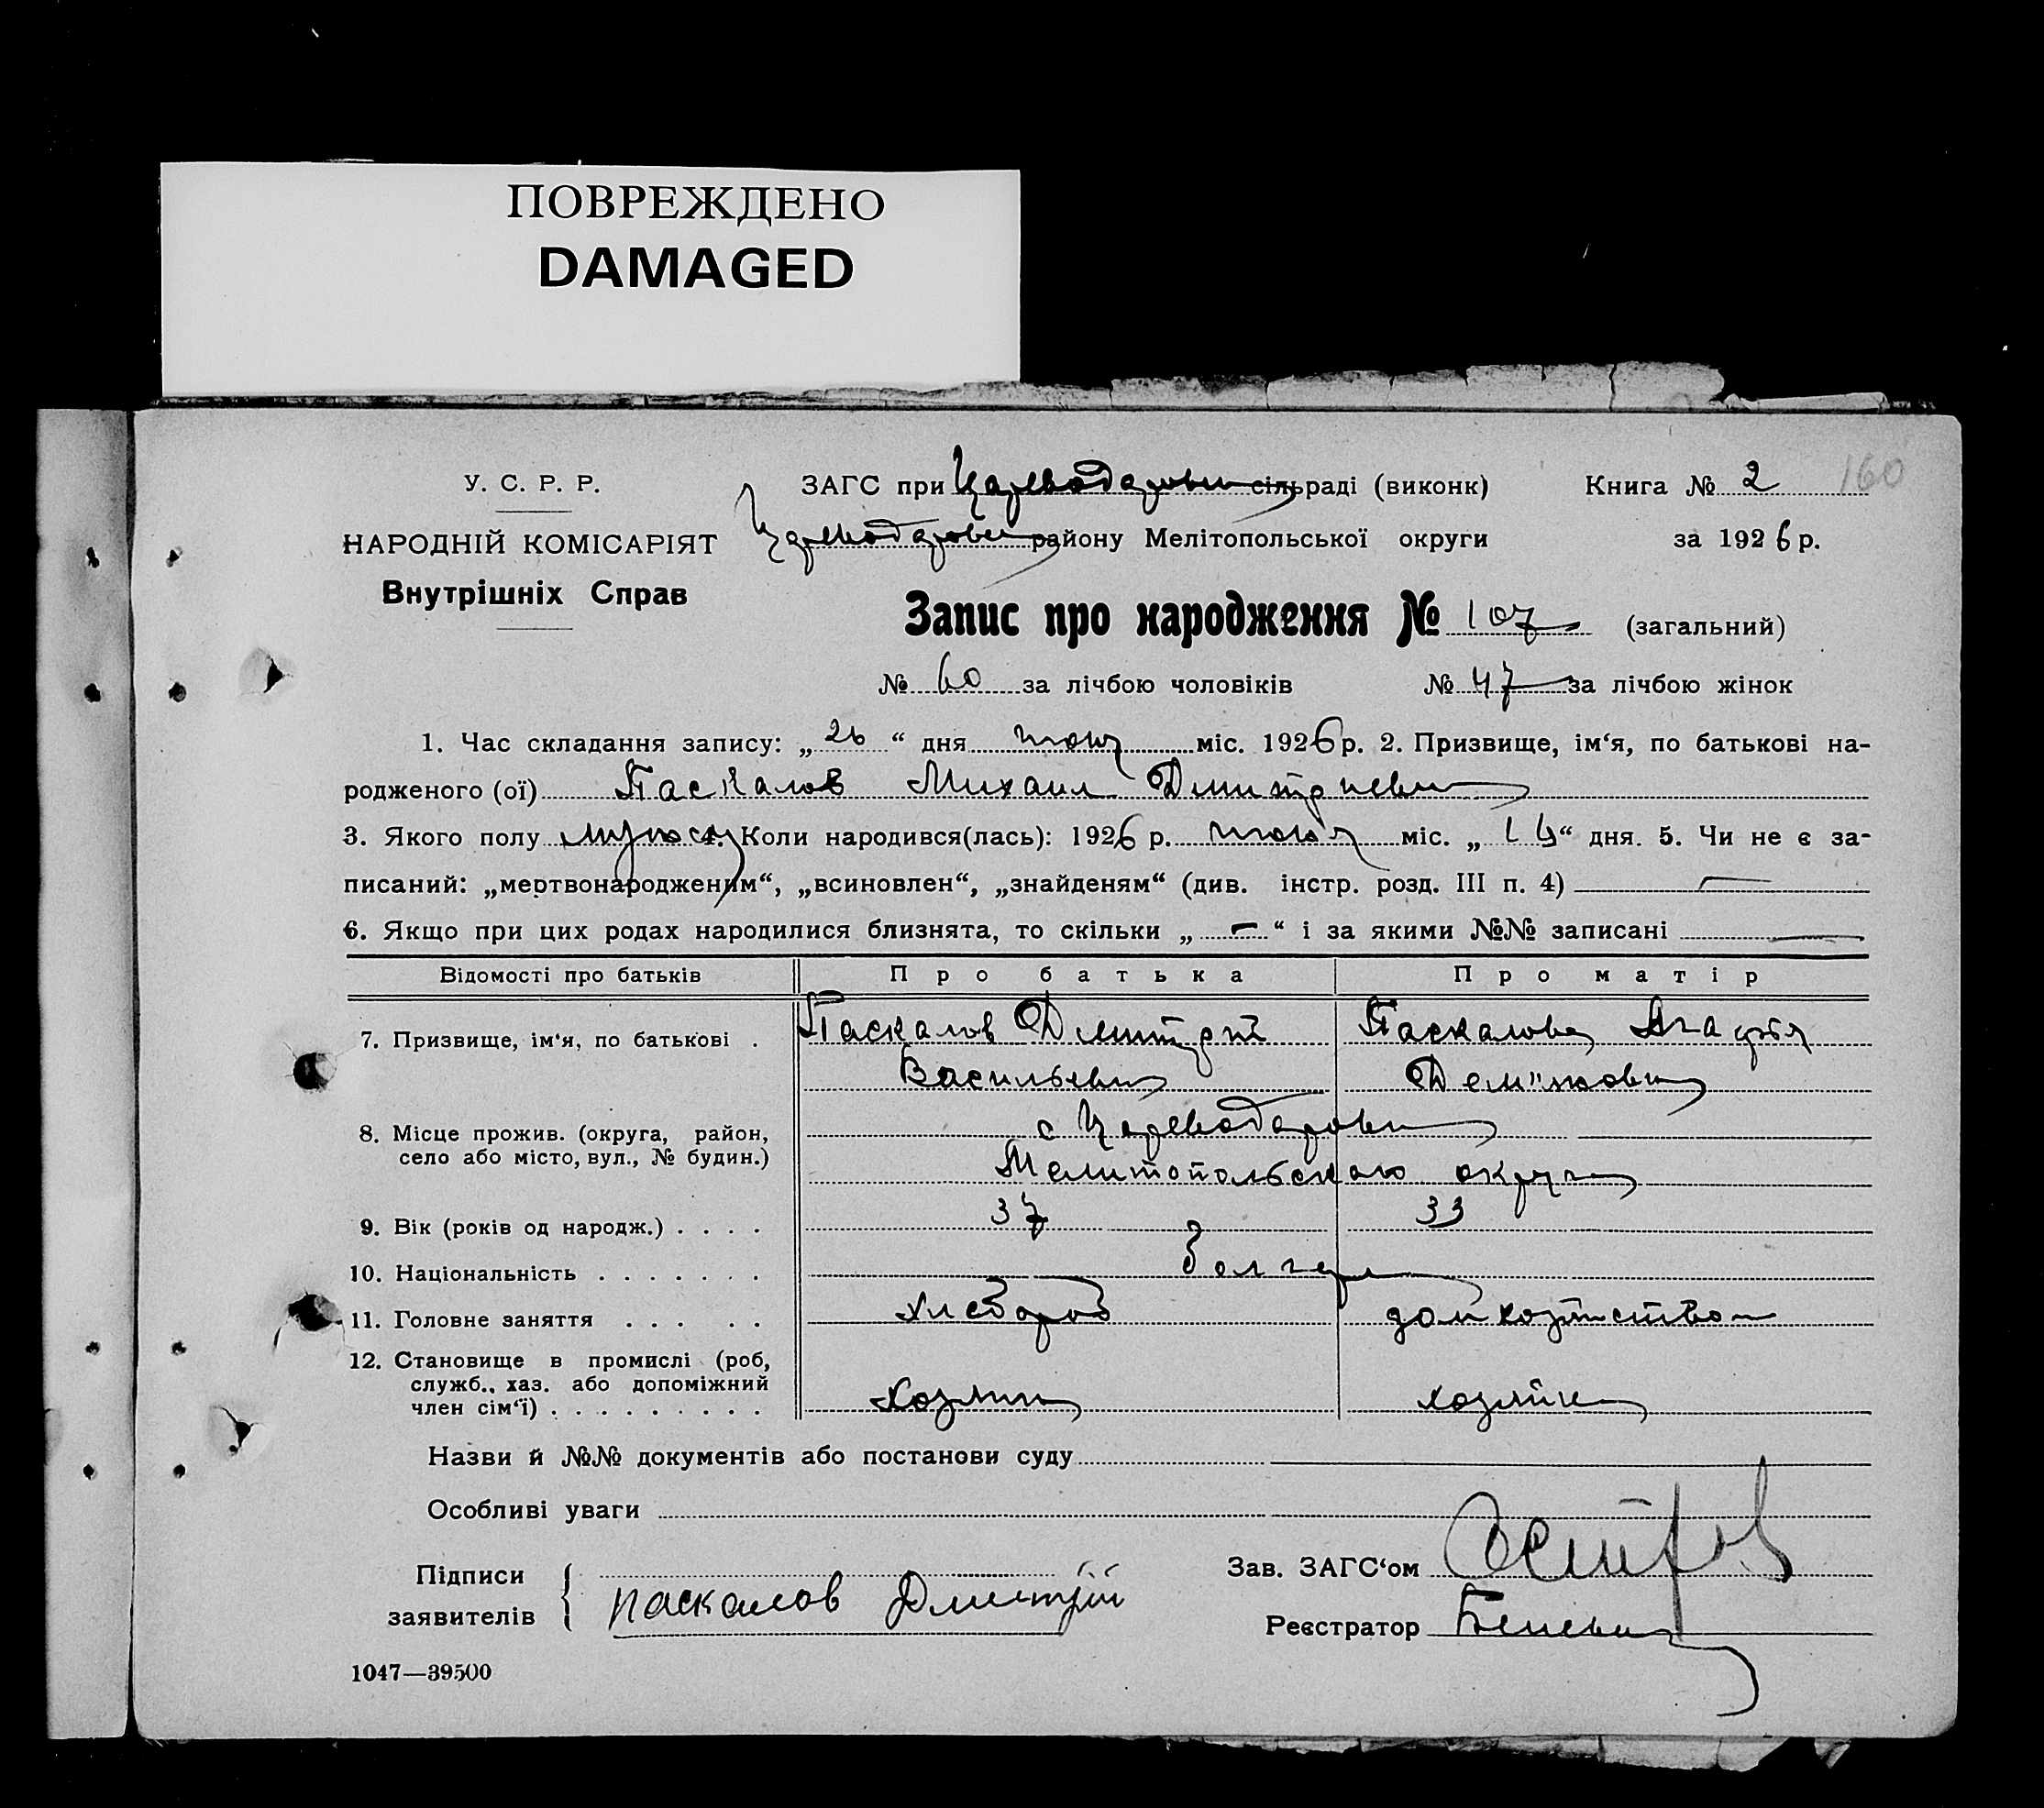 ПОВРЕЖДЕНО
DAMAGED
У. С. Р. Р.
НАРОДНІЙ КОМІСАРІЯТ
Внутрішніх Справ
ЗАГС при Цареводаровк сільраді (виконк)
Цареводаровк району Мелітопольської округи
Книга № 2 160
за 1926 р.
Запис про народження № 107 (загальний)
№ 60 за лічбою чоловіків № 47 за лічбою жінок
1. Час складання запису: „ 26 “ дня июня міс. 1926 р. 2. Призвище, ім‘я, по батькові на-
родженого (ої) Паскалов Михаил Дмитриевич
3. Якого полу мужск 4. Коли народився(лась): 1926 р. июня міс. „ “ дня. 5. Чи не є за-
писаний: „мертвонародженим“, „всиновлен“, „знайденям“ (див. інстр. розд. III п. 4) —
6. Якщо при цих родах народилися близнята, то скільки „ – “ і за якими №№ записані —
Відомості про батьків Про батька Про матір
7. Призвище, ім‘я, по батькові . Паскалов Дмитрий Паскалова Агафія
Васильевич
8. Місце прожив. (округа, район, с Цареводаровк
село або місто, вул., № будин.) Мелитопольского округа
9. Вік (років од народж.) . . . . 37 33
10. Національність . . . . . . . болгаре
11. Головне заняття . . . . . Хлебороб домхозяйство
12. Становище в промислі (роб,
служб., хаз. або допоміжний
член сім‘ї) . . . . . . . . . Хозяин хозяйка
Назви й №№ документів або постанови суду
Особливі уваги
Підписи
заявителів { Паскалов Дмитрій
Зав. ЗАГС‘ом
Реєстратор
1047—39500